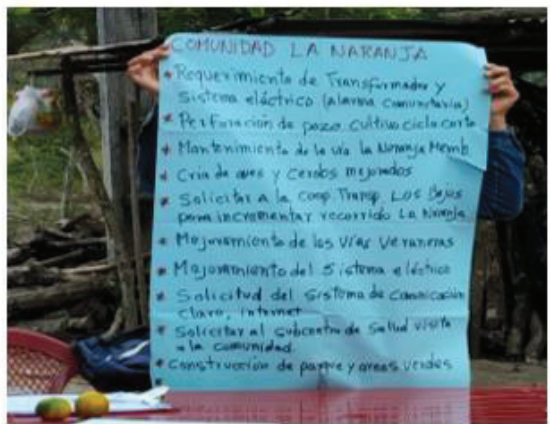 COMUNIDAD LA NARANJA
* Requerimiento de Transformador y
Sistema eléctrico (alarma comunitaria)
* Perforación de pozo cultivo ciclo corto
* Mantenimiento de la vía la Naranja Memb
* Cria de aves y Cerdos mejorados
* Solicitar a la Coop Transp. Los
para incrementar recorrido La Naranja
* Mejoramiento de las Vías Veraneras
* Mejoramiento del Sistema eléctrico
* Solicitud del Sistema de Comunicación
Claro, internet
* Solicitar al subcentro de Salud visita
a la comunidad.
* Construcción de parque y areas verdes